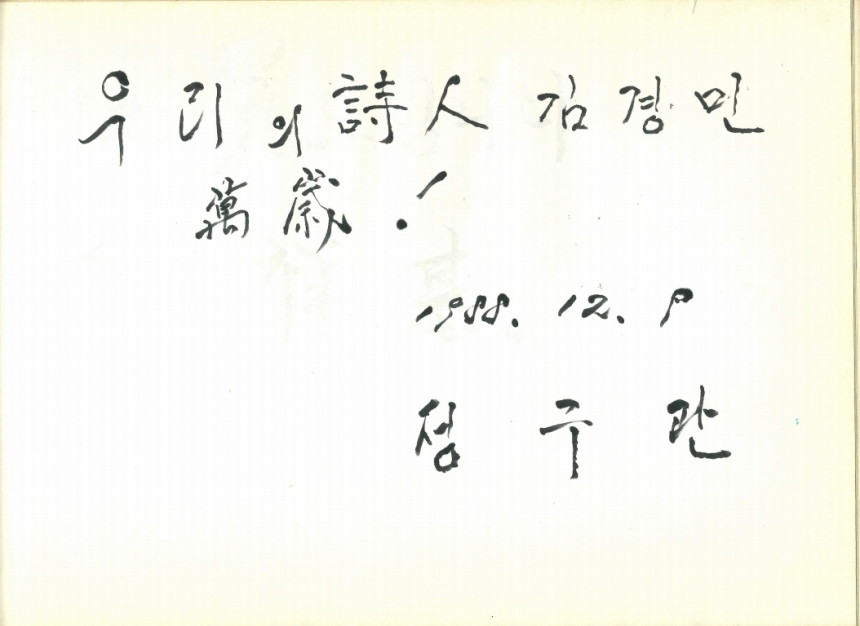 우리의 詩人 김경민
萬歲!
1988. 12. 9
정규관